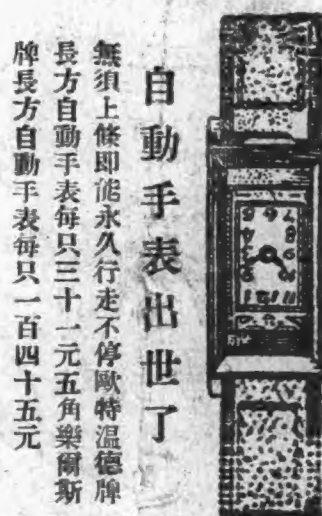 自動手表出世了
無須上條即能永久行走不停歐特溫德牌
長方自動手表每只三十一元五角樂爾斯
牌長方自動手表每只一百四十五元